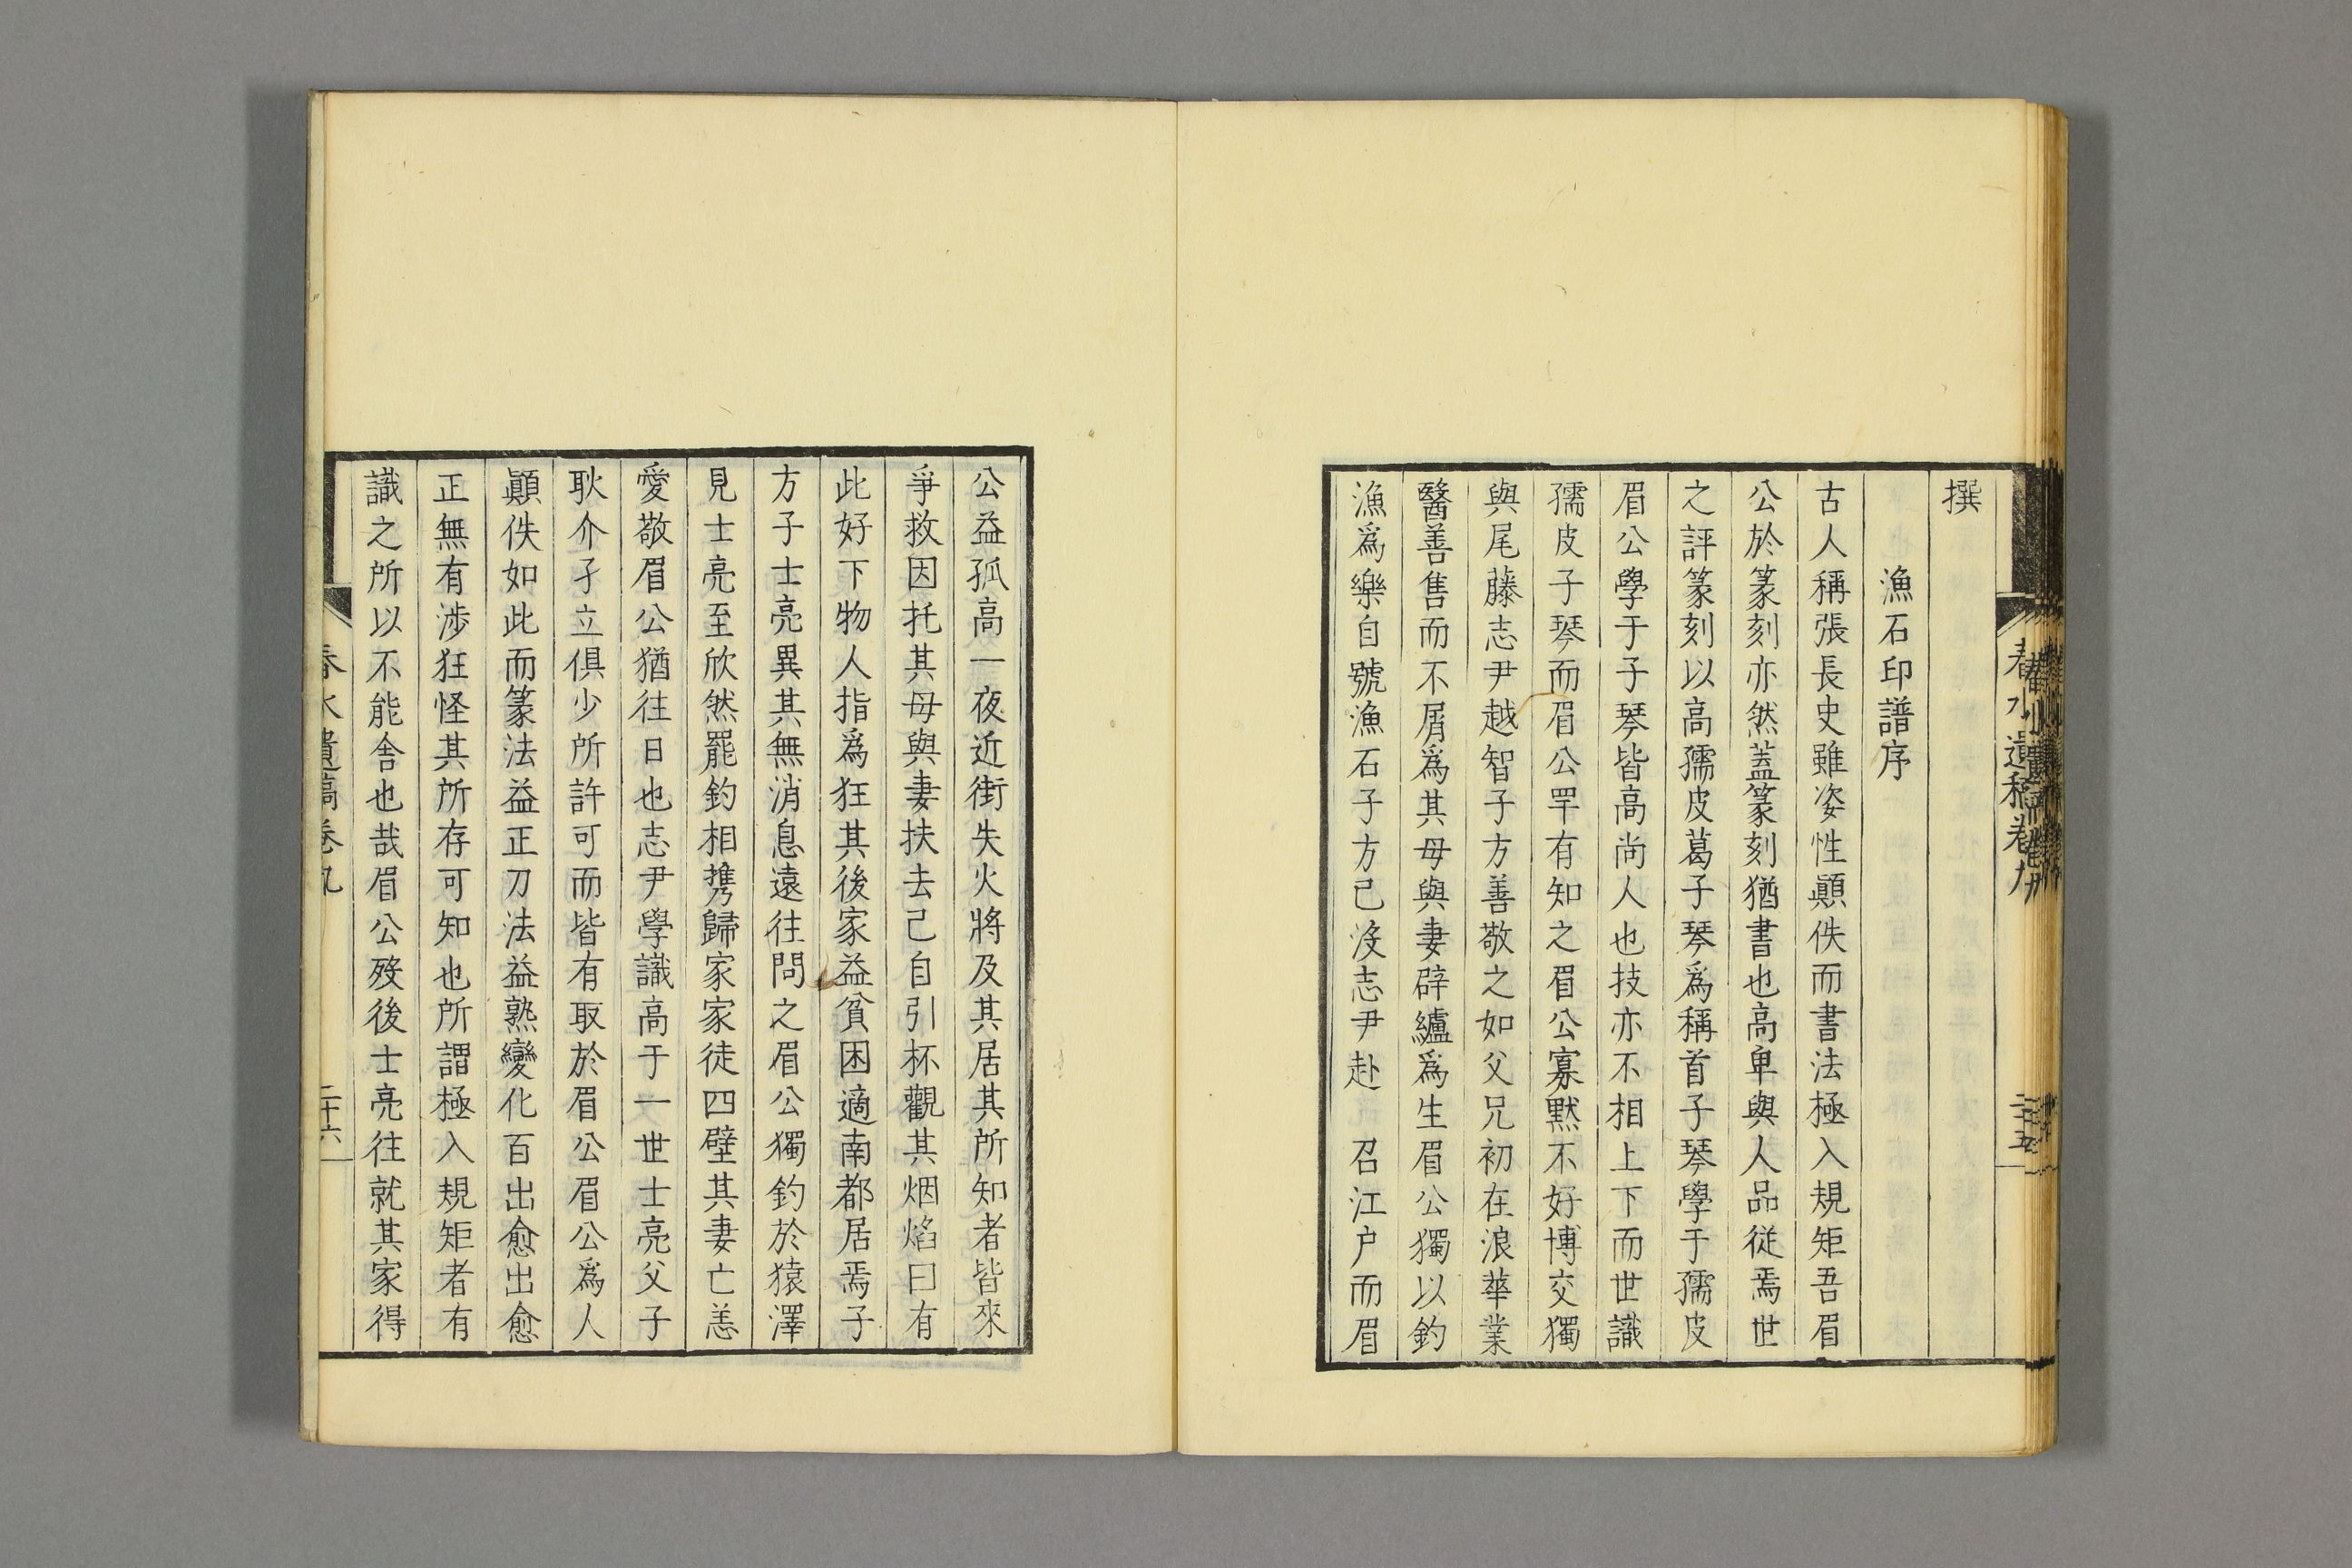 撰
漁石印譜序
古人稱張長史雖姿性顚佚而書法極入規矩吾眉
公於篆刻亦然蓋篆刻猶書也高卑與人品從焉世
之評篆刻以高孺皮葛子琴爲稱首子琴學于孺皮
眉公學于子琴皆高尚人也技亦不相上下而世識
孺皮子琴而眉公罕有知之眉公寡默不好博交獨
與尾藤志尹越智子方善敬之如父兄初在浪華業
醫善售而不屑爲其母與妻辟纑爲生眉公獨以釣
漁爲樂自號漁石子方已没志尹赴 召江户而眉
春水遺稿卷九
二十五
公益孤高一夜近街失火將及其居其所知者皆來
爭救因托其母與妻扶去己自引杯觀其烟焰曰有
此好下物人指爲狂其後家益貧困適南都居焉子
方子士亮異其無消息遠往問之眉公獨釣於猿澤
見士亮至欣然罷釣相携歸家家徒四壁其妻亡恙
愛敬眉公猶往日也志尹學識高于一世士亮父子
耿介孑立俱少所許可而皆有取於眉公眉公爲人
顚佚如此而篆法益正刀法益熟變化百出愈出愈
正無有渉狂怪其所存可知也所謂極入規矩者有
識之所以不能舍也哉眉公歿後士亮往就其家得
春水遺稿卷九
二十六